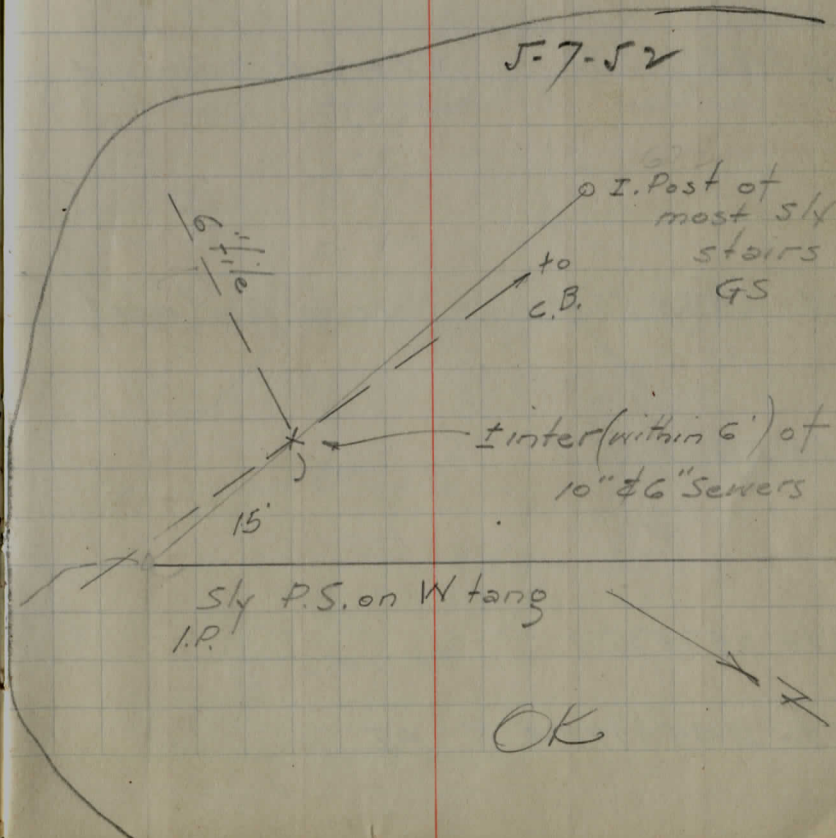 5-7-52
I. Post of
most sly
stairs
GS
6" tile
to
C.B.
± inter (within 6') of
10" & 6" Sewers
15'
Sly P.S. on W tang
I.P.
N
OK